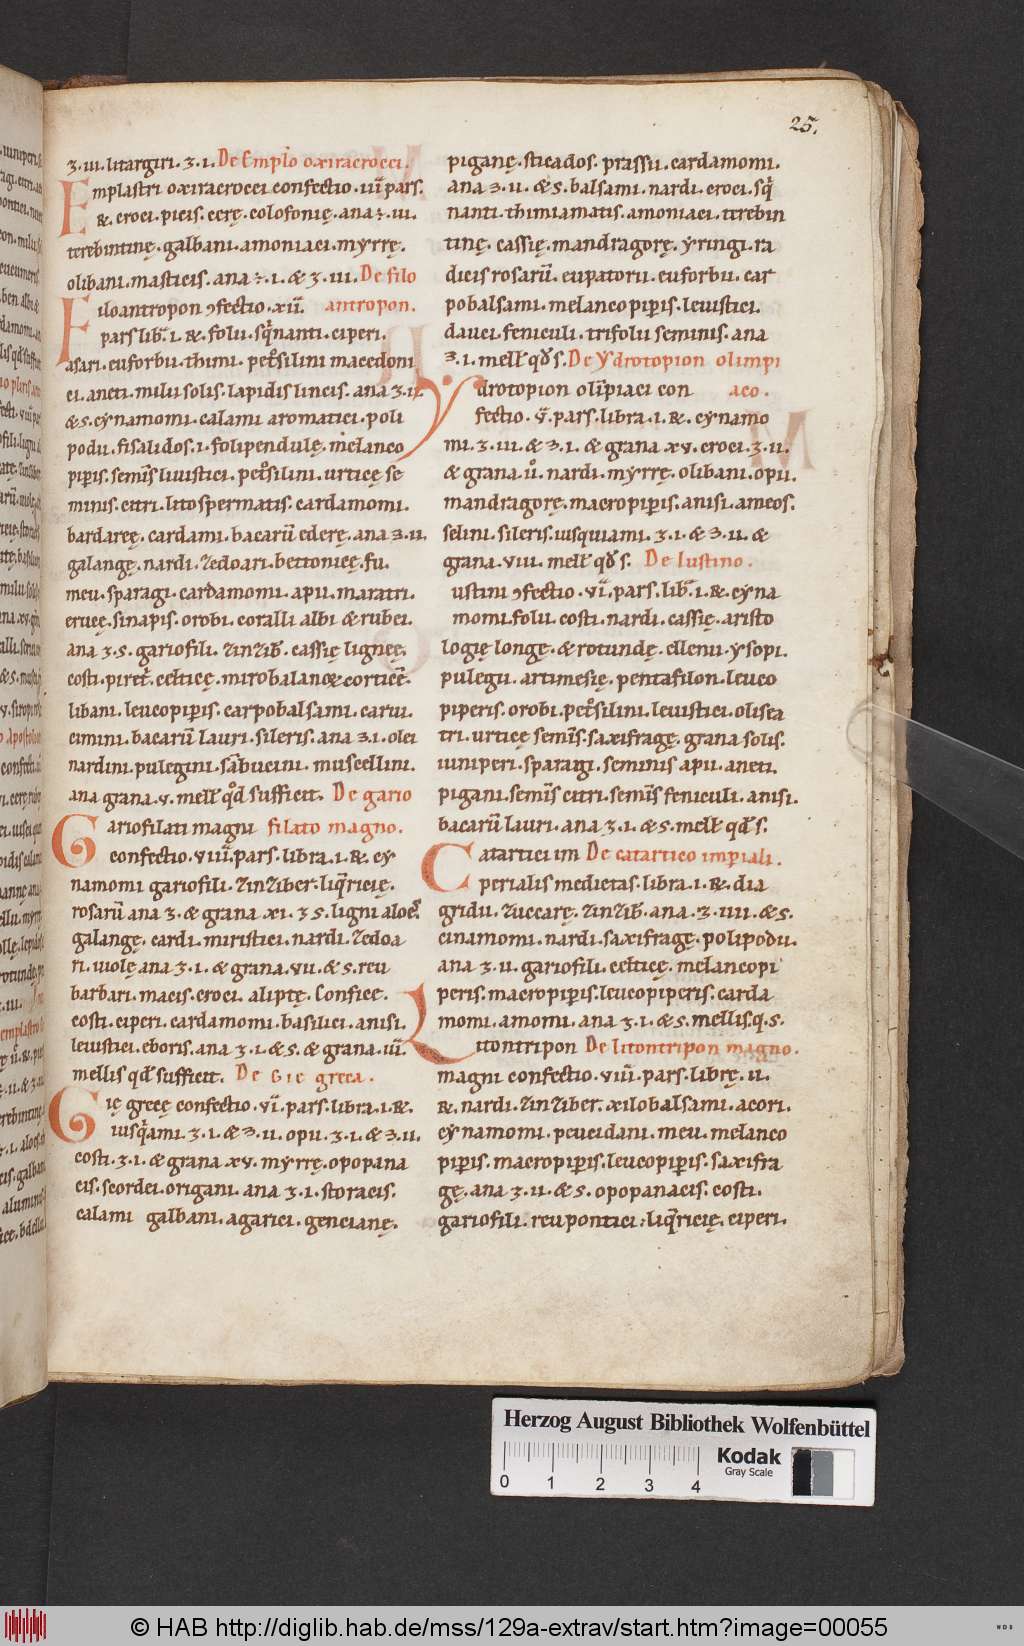 25.
ʒ.iii. litargiri. ʒ.i. De Emplꝰo oxiracrocei.
Emplastri oxiracrocei confectio. iii᷑ pars.
&. croci. picis. cerę. colofonię. ana ÷. iii.
terebintinę. galbani. amoniaci. myrrę.
olibani. masticis. ana ÷.i. & ʒ.iii. De filo
Filoantropon ꝯfectio. xii᷑. antropon.
pars lib᷑.i. &. folii. sq᷑nanti. ciperi.
asari. euforbii. thimi. pet᷑silini macedoni
ci. aneti. milii solis. lapidis lincis. ana ʒ.ii.
& s. cynamomi. calami aromatici. poli
podii. fisalidos. i. folipendulę. melanco
piꝑis. semīs liuistici. pet᷑silini. urticę se
minis. citri. litospermatis. cardamomi.
bardaręę. cardami. bacarū ederę. ana ʒ.ii.
galangę. nardi. zedoari. bettonicę. fu.
meu. sparagi. cardamomi. apii. maratri.
erucę. sinapis. orobi. coralli albi & rubei.
ana ʒ.s. gariofili. zinzib᷑. cassię ligneę.
costi. piret᷑. celticę. mirobalanoꝝ corticē.
libani. leucopiꝑis. carpobalsami. carui.
cimini. bacarū lauri. sileris. ana ʒ.i. olei
nardini. pulegini. sābucini. muscellini.
ana grana. v. mell᷑ qd̄ sufficit. De gario
Gariofilati magni filato magno.
confectio. viii᷑. pars. libra. i. &. cy
namomi gariofili. zinziber. liq᷑ricię.
rosarū ana ʒ. & grana. xi. ʒ s. ligni aloes᷑.
galangę. cardi. miristici. nardi. zedoa
ri. uiolę ana ʒ.i. & grana. vii. & s. reu
barbari. macis. croci. aliptę. Confice.
costi. ciperi. cardamomi. basilici. anisi.
leuistici. eboris. ana ʒ.i. & s. & grana. iii᷑.
mellis qd̄ sufficit. De Gie greca.
Gię grecę confectio. vi᷑. pars. libra. i. &.
iusq᷑ami. ʒ.i. & ʒ.ii. opii. ʒ.i. & ʒ.ii.
costi. ʒ.i. & grana xv. myrrę. opopana
cis. scordei. origani. ana ʒ.i. storacis.
calami galbani. agarici. gencianę.
piganę. sticados. prassii. cardamomi.
ana ʒ.ii. & s. balsami. nardi. croci. sq᷑
nanti. thimiamatis. amoniaci. terebin
tinę. cassię. mandragorę. yringi. ra
dicis rosarū. eupatorii. euforbii. car
pobalsami. melancopiꝑis. leuistici.
dauci. feniculi. trifolii seminis. ana
ʒ.i. mell᷑ qd̄ s. De ydrotopion olimpi
Ydrotopion olīpiaci con aco.
fectio. v᷑. pars. libra. i. &. cynamo
mi. ʒ.iii. & ʒ.i. & grana xv. croci. ʒ.ii.
& grana. ii᷑. nardi. myrrę. olibani. opii.
mandragorę. macropiꝑis. anisi. ameos.
selini. sileris. iusquiami. ʒ.i. & ʒ.ii. &
grana. viii. mell᷑ qd̄ s. De Iustino.
ustini ꝯfectio. vi᷑. pars. lib᷑. i. &. cyna
momi. folii. costi. nardi. cassię. aristo
logię longę. & rotundę. ellenii. ysopi.
pulegii. artimesię. pentafilon. leuco
piperis. orobi. pet᷑silini. leuistici. olisea
tri. urticę semīs. saxifragę. grana solis.
iuniperi. sparagi. seminis apii. aneti.
pigani. semīs citri. semīs feniculi. anisi.
bacarū lauri. ana ʒ.i. & s. mell᷑ qd̄ s.
Catartici im De catartico imꝑiali.
perialis medietas. libra. i. &. dia
gridii. zuccarę. zinzib᷑. ana. ʒ.iiii. & s.
cinamomi. nardi. saxifragę. polipodii.
ana ʒ.ii. gariofili. celticę. melancopi
peris. macropiꝑis. leucopiperis. carda
momi. amomi. ana ʒ.i. & s. mellis. q.s.
Litontripon De litontripon magno.
magni confectio. viii᷑. pars. librę. ii.
&. nardi. zinziber. xilobalsami. acori.
cynamomi. peucidani. meu. melanco
piꝑis. macropiꝑis. leucopiꝑis. saxifra
gę. ana ʒ.ii. & s. opopanacis. costi.
gariofili. reupontici. liq᷑ricię. ciperi.
Herzog August Bibliothek Wolfenbüttel
Kodak
Gray Scale
0 1 2 3 4
© HAB http://diglib.hab.de/mss/129a-extrav/start.htm?image=00055